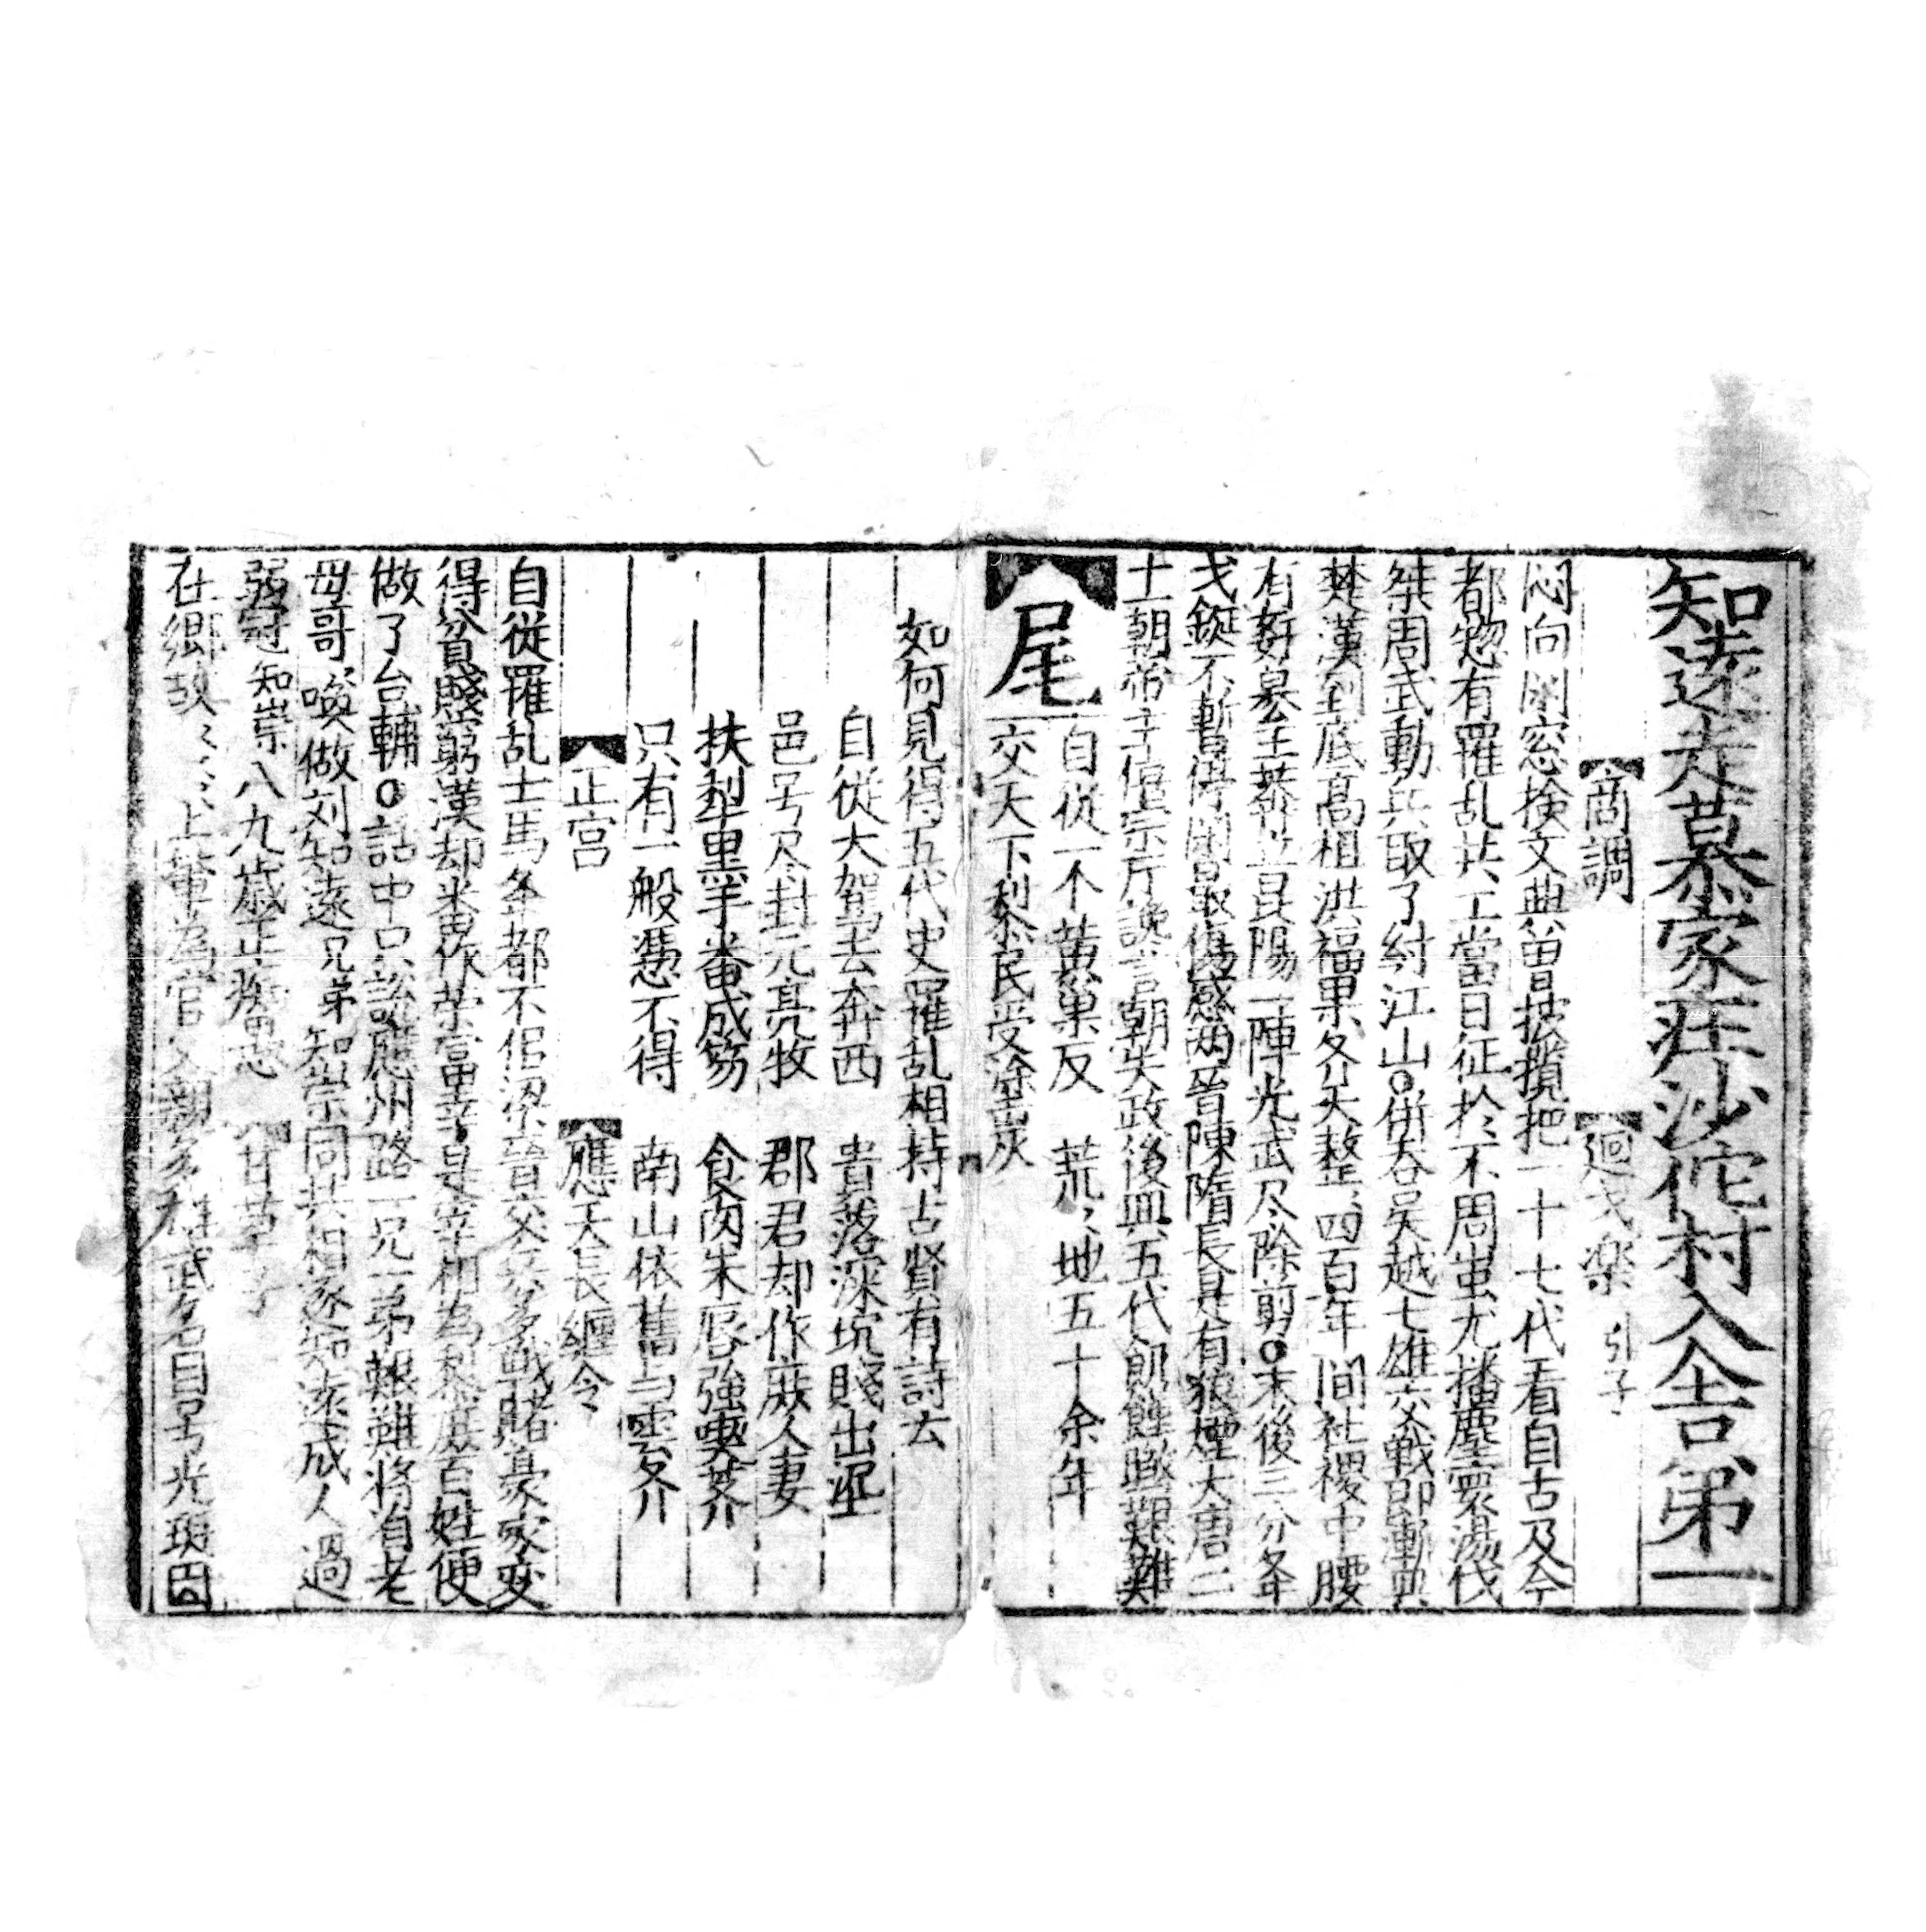 知遠走慕家庄沙佗村入舍第一
商調　廻戈楽　引子
悶向閑窓捡文典曽披攬把一十七代看自古及今
都惣有羅乱共工當日征於不周蚩尤播塵寰湯伐
桀周武動兵取了紂江山○併吞吴越七雄交戰即漸興
楚漢到底高祖洪福果齐天整〻四百年間社稷中腰
有奸篡王莽立昆陽一陣光武尽除剪○末後三分年
戈鋋不暫停閑最傷感両晋陳隋長是有狼煙大唐二
十朝帝王僖宗听讒言朝失政後興五代飢饉艱難
尾
自従一个黄巢反　荒〻地五十余年
交天下利黎民受塗炭
如何見得五代史羅乱相持古賢有詩云
自従大駕去奔西　貴落深坑賤出泥
邑号尽封元亮牧　郡君却作庶人妻
扶犁黑手番成笏　食肉朱唇強喫虀
只有一般憑不得　南山依舊与雲齐
正宮　應天長纏令
自從羅乱士馬举都不侶梁晋交兵多戰賭豪家变
得貧賤窮漢却番作榮富幸是宰相為黎庶百姓便
做了台輔○話中只説應州路一兄一弟艱難将自老
母哥〻喚做刘知遠兄弟知崇同共相逐知遠成人過
弱冠知崇八九歳正痴憨　甘草子
在郷故〻〻〻上輩為官父親多雄武名目号光琠因